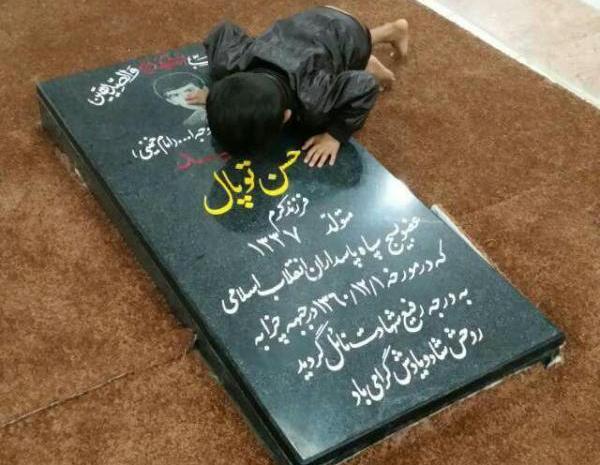 والصدیقین
(امام خمینی)
حسن توپال
فرزند کرم
متولد ۱۳۳۷
عضو بسیج سپاه پاسداران انقلاب اسلامی
که در مورخه ۱۳۶۰/۱۲/۱ در جبهه چزابه
به درجه رفیع شهادت نائل گردید
روحش شاد و یادش گرامی باد